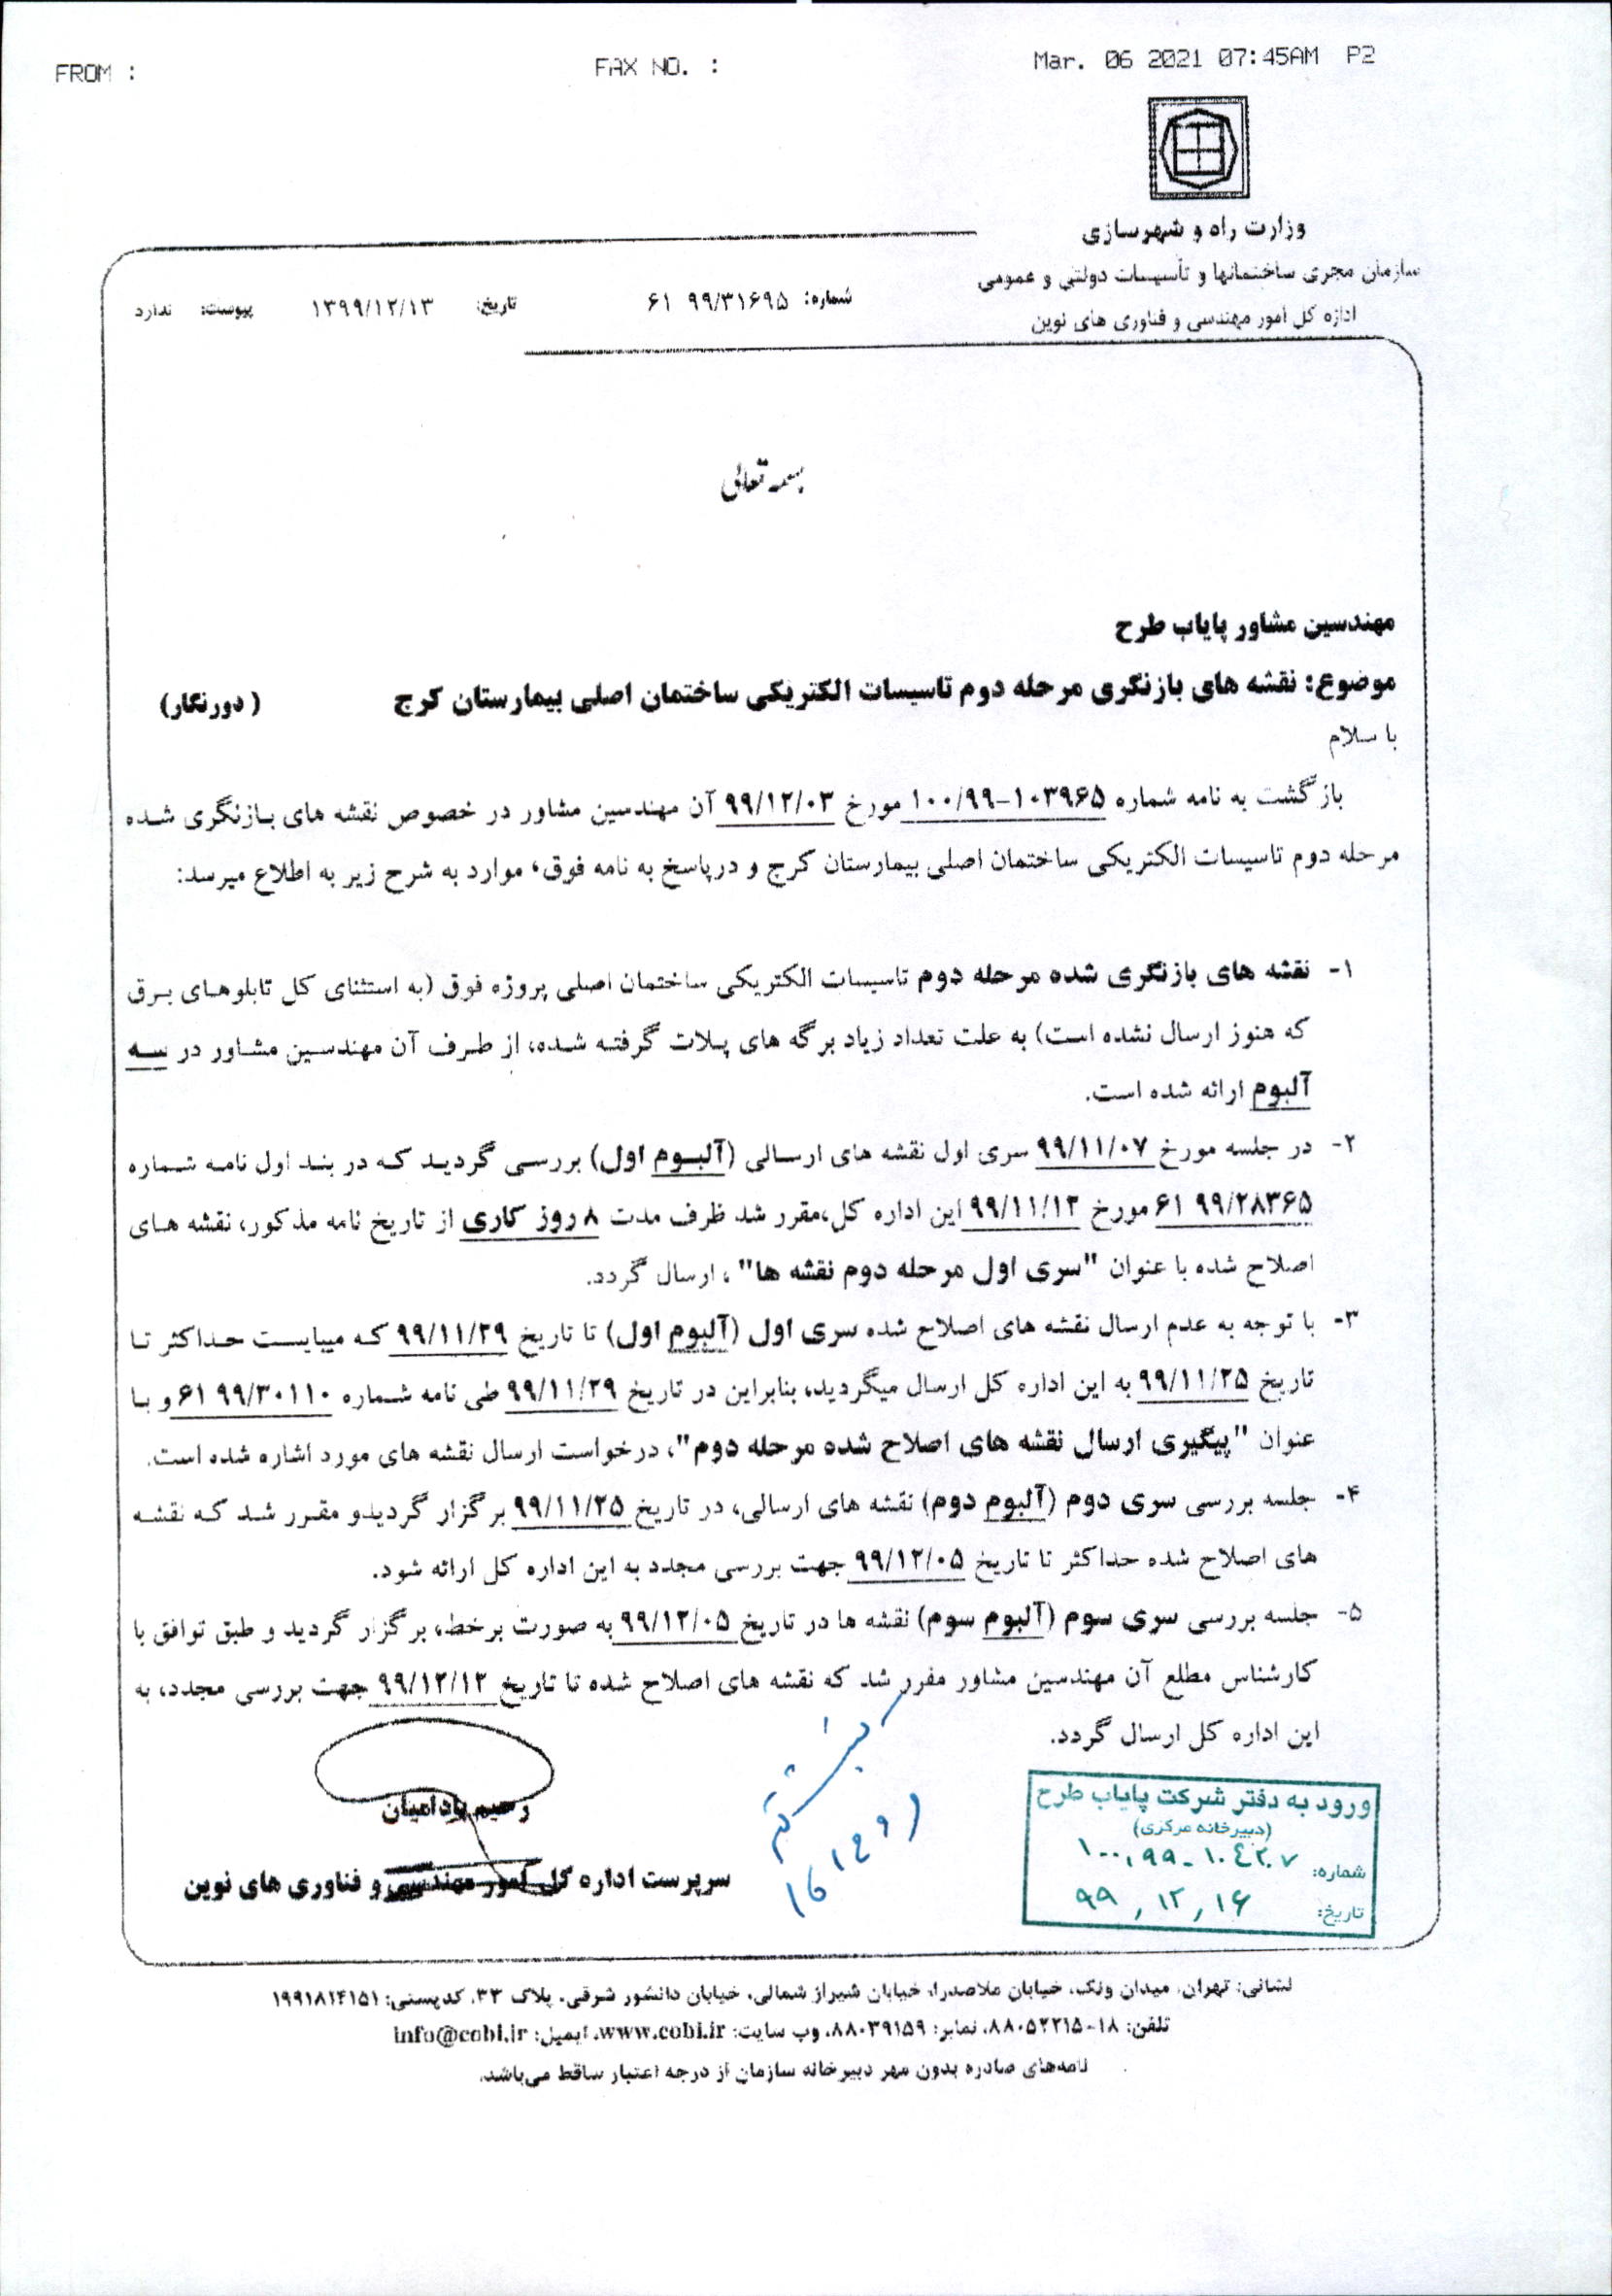 FROM :
FAX NO. :
Mar. 06 2021 07:45AM P2
وزارت راه و شهرسازی
سازمان مجری ساختمانها و تأسیسات دولتی و عمومی
اداره کل امور مهندسی و فناوری های نوین
شماره: ۹۹/۳۱۶۹۵ ۶۱
تاریخ: ۱۳۹۹/۱۲/۱۳
پیوست: ندارد
بسمه تعالی
مهندسین مشاور پایاب طرح
موضوع: نقشه های بازنگری مرحله دوم تاسیسات الکتریکی ساختمان اصلی بیمارستان کرج (دورنگار)
با سلام
بازگشت به نامه شماره ۱۰۳۹۶۵-۱۰۰/۹۹ مورخ ۹۹/۱۲/۰۳ آن مهندسین مشاور در خصوص نقشه های بازنگری شده
مرحله دوم تاسیسات الکتریکی ساختمان اصلی بیمارستان کرج و درپاسخ به نامه فوق، موارد به شرح زیر به اطلاع میرسد:
۱- نقشه های بازنگری شده مرحله دوم تاسیسات الکتریکی ساختمان اصلی پروژه فوق (به استثنای کل تابلوهای برق
که هنوز ارسال نشده است) به علت تعداد زیاد برگه های پلات گرفته شده، از طرف آن مهندسین مشاور در سه
آلبوم ارائه شده است.
۲- در جلسه مورخ ۹۹/۱۱/۰۷ سری اول نقشه های ارسالی (آلبوم اول) بررسی گردید که در بند اول نامه شماره
۹۹/۲۸۳۶۵ ۶۱ مورخ ۹۹/۱۱/۱۳ این اداره کل،مقرر شد ظرف مدت ۸ روز کاری از تاریخ نامه مذکور، نقشه های
اصلاح شده با عنوان "سری اول مرحله دوم نقشه ها" ، ارسال گردد.
۳- با توجه به عدم ارسال نقشه های اصلاح شده سری اول (آلبوم اول) تا تاریخ ۹۹/۱۱/۲۹ که میبایست حداکثر تا
تاریخ ۹۹/۱۱/۲۵ به این اداره کل ارسال میگردید، بنابراین در تاریخ ۹۹/۱۱/۲۹ طی نامه شماره ۹۹/۳۰۱۱۰ ۶۱ و با
عنوان "پیگیری ارسال نقشه های اصلاح شده مرحله دوم"، درخواست ارسال نقشه های مورد اشاره شده است.
۴- جلسه بررسی سری دوم (آلبوم دوم) نقشه های ارسالی، در تاریخ ۹۹/۱۱/۲۵ برگزار گردیدو مقرر شد که نقشه
های اصلاح شده حداکثر تا تاریخ ۹۹/۱۲/۰۵ جهت بررسی مجدد به این اداره کل ارائه شود.
۵- جلسه بررسی سری سوم (آلبوم سوم) نقشه ها در تاریخ ۹۹/۱۲/۰۵ به صورت برخط، برگزار گردید و طبق توافق با
کارشناس مطلع آن مهندسین مشاور مقرر شد که نقشه های اصلاح شده تا تاریخ ۹۹/۱۲/۱۲ جهت بررسی مجدد، به
این اداره کل ارسال گردد.
رحیم پادامیان
سرپرست اداره کل امور مهندسی و فناوری های نوین
ورود به دفتر شرکت پایاب طرح
(دبیرخانه مرکزی)
شماره: ۱۰۰,۹۹-۱۰۴۲۰۷
تاریخ: ۹۹,۱۲,۱۶
نشانی: تهران، میدان ونک، خیابان ملاصدرا، خیابان شیراز شمالی، خیابان دانشور شرقی، پلاک ۲۳، کدپستی: ۱۹۹۱۸۱۴۱۵۱
تلفن: ۱۸-۸۸۰۵۲۲۱۵، نمابر: ۸۸۰۳۹۱۵۹، وب سایت: www.cobi.ir، ایمیل: info@cobi.ir
نامه‌های صادره بدون مهر دبیرخانه سازمان از درجه اعتبار ساقط می‌باشد.